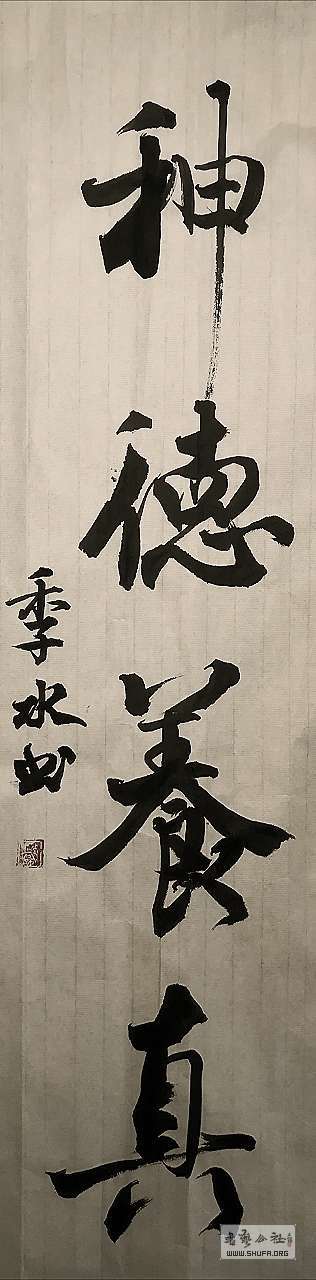 神德養真
季水书
书艺公社
WWW.SHUFA.ORG